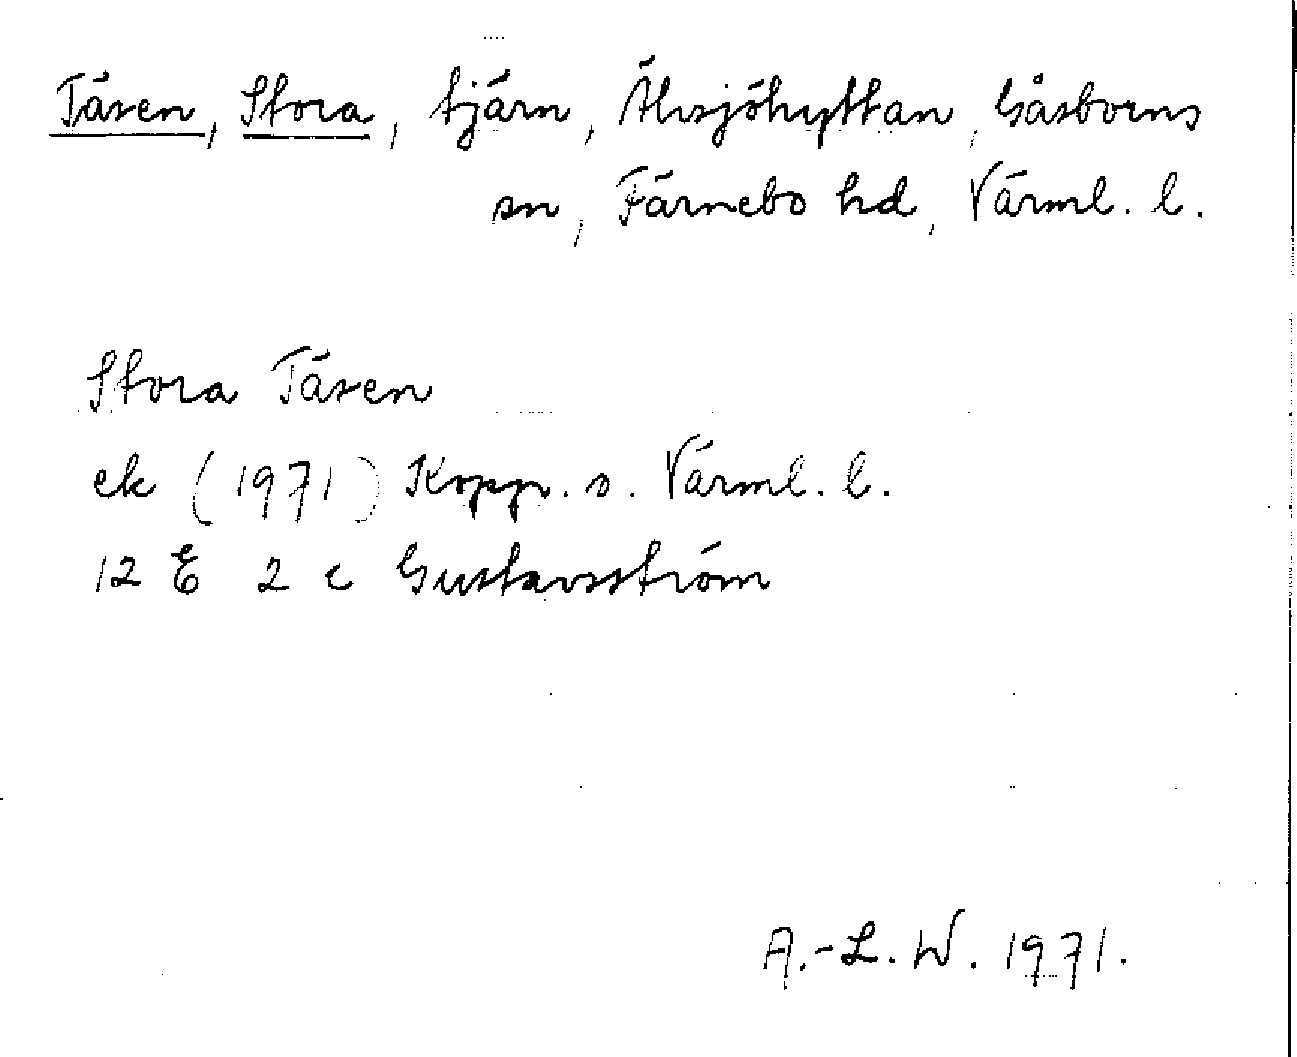 Täxen, Stora, tjärn, Älvsjöhyttan, Gåsborns
sn, Färnebo hd, Värml. l.
Stora Täxen
ek (1971) Kopp. o. Värml. l.
12 E 2 c Gustavsström
A.-L. W. 1971.